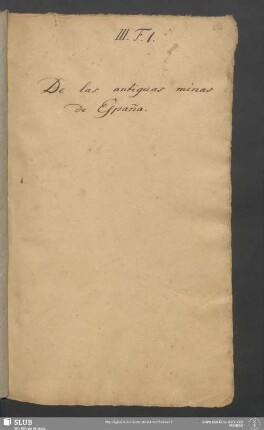 III. F. 1.
De las antiguas minas
de España.
SLUB